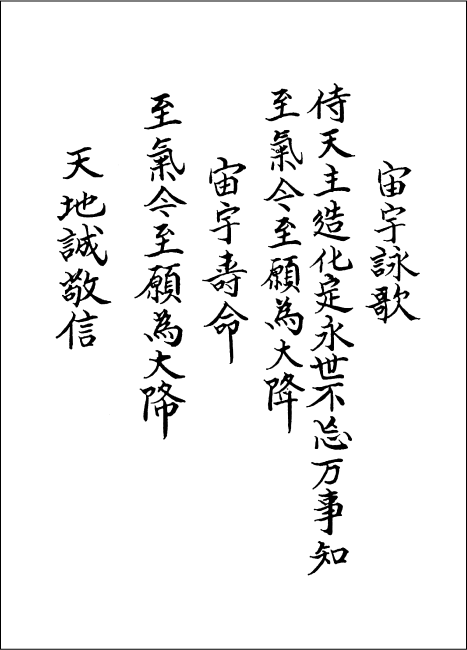 宙宇詠歌
侍天主造化定永世不忘万事知
至氣今至願為大降
宙宇寿命
至氣今至願為大降
天地誠敬信